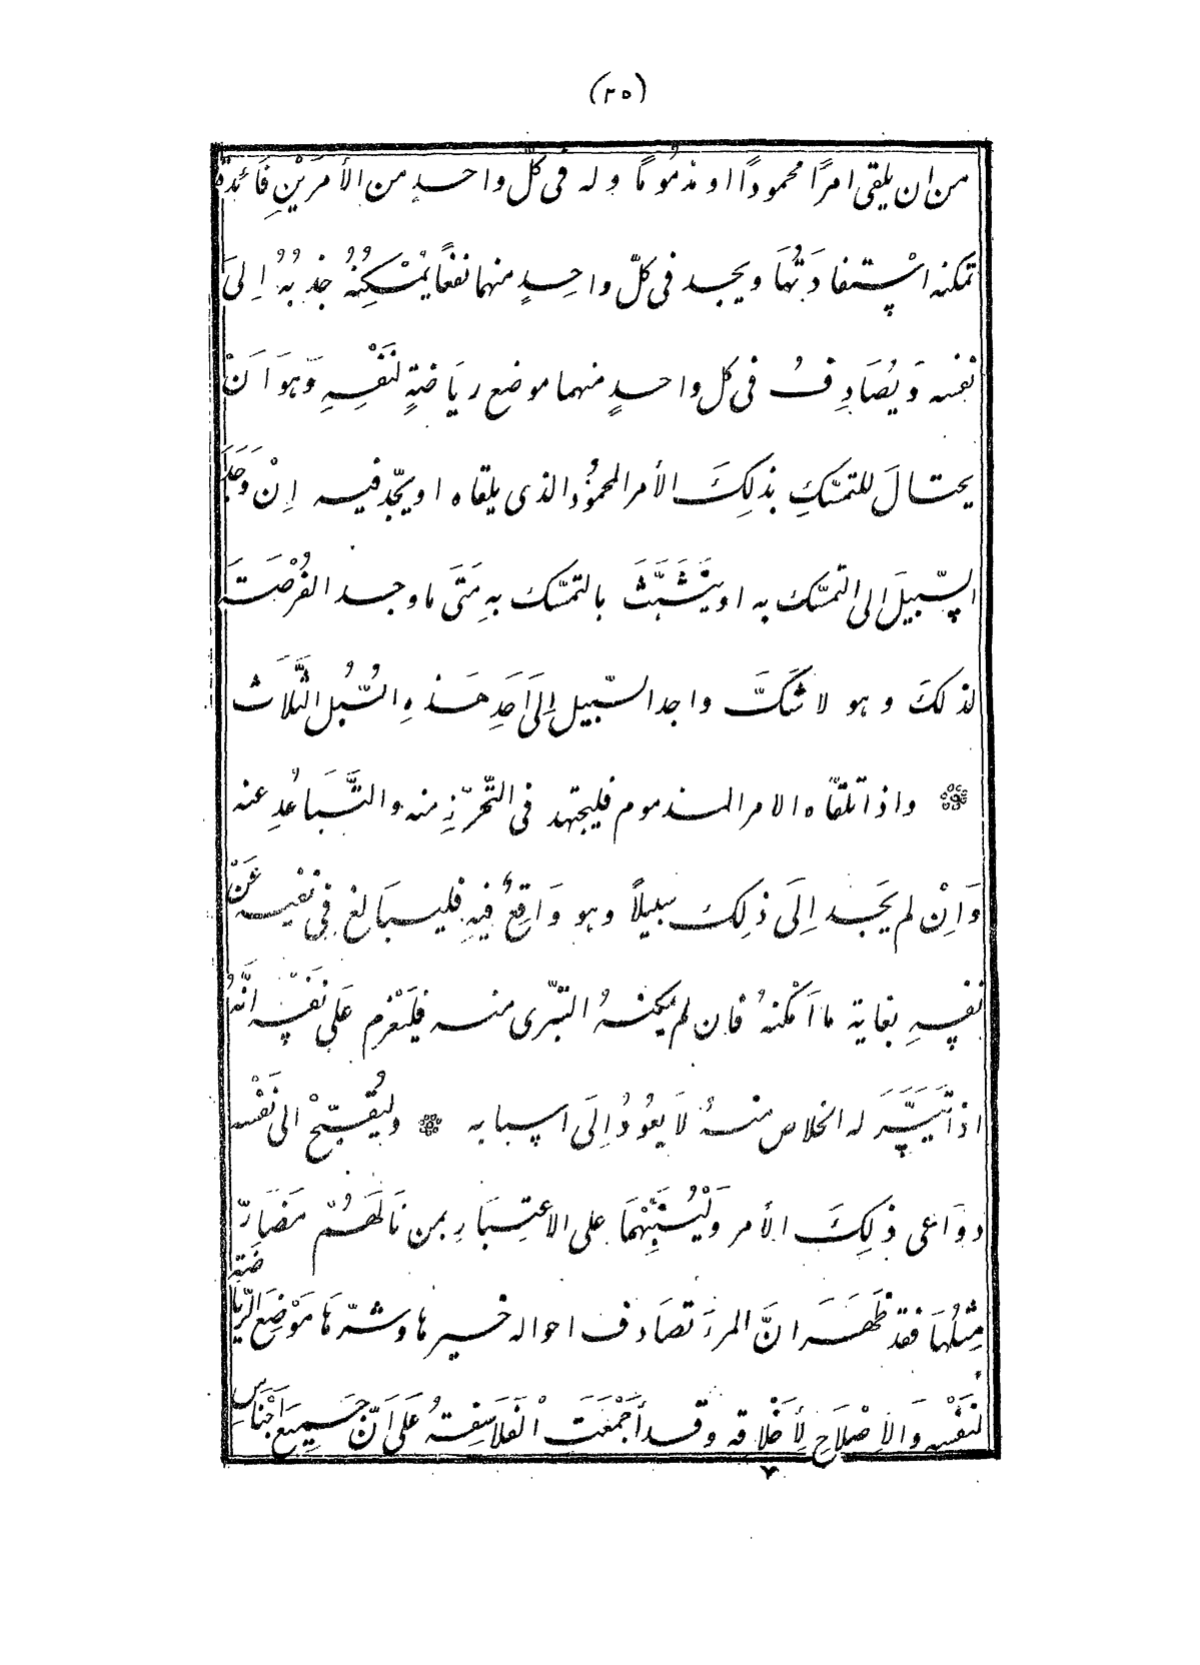 (٢٥)
من ان يلقى امرًا محمودًا او مذمُومًا وله فى كلّ واحدٍ من الأمرَيْنِ فَائدة
تمكنه اسْتفادَتُهَا ويجد فى كلّ واحِدٍ منهما نفعًا يُمْكِنُهُ جذبُهُ اِلىَ
نفسه وَيُصَادِفُ فى كل واحدٍ منهما موضع ريَاضَةٍ لنَفْسِهِ وَهوَ اَنْ
يحتالَ للتمسّكِ بذلِكَ الأمر المحمُوُد الذى يلقاه او يجّد فيه اِنْ وَجَدَ
السّبيلَ الى التمسّك به او يتَشَبَّثَ بالتمسّك بهِ مَتَى ما وجد الفُرْصَتَ
لذلكَ وهو لا شَكَّ واجد السّبيل اِلَى اَحَدِ هَذهِ السُّبُل الثَّلاَث
۞ واذا تلقّاه الامر المذموم فليجتهد فى التَّحَرّزِ منه والتَّبَاعُدِ عنه
وَاِنْ لم يَجَد اِلَى ذلِك سبيلاً وهو وَاقِعٌ فيِهِ فليبَالغ فى نفيه عَنْ
نفسِهِ بغاية ما اَمْكنهُ فان لم يمكنهُ التبّرى منه فليَعْزم عَلى نَفسِه اَنَّهُ
اذا تَيَسَّرَ له الخلاص منهُ لاَ يعُودُ اِلَى اسبابه ۞ وليُقبّحْ الى نَفْسه
دوَاعى ذلِكَ الأمر وَلْيُنَبِّهْهَا على الاعتِبَارِ بمن نَالَهُمّ مَضَارّ
مِثلُهَا فقد ظَهَرَ انَّ المرءَ تصَادف احواله خيرها وشرّهَا مَوْضِعَ الرّيَاضَةِ
لنَفْسه وَالاِصْلاَحِ لِأَخْلاَقه وقد أَجْمَعَت الْفَلاَسِفةُ عَلَى اَنّ جَمِيعَ اَجْنَاسِ
٧